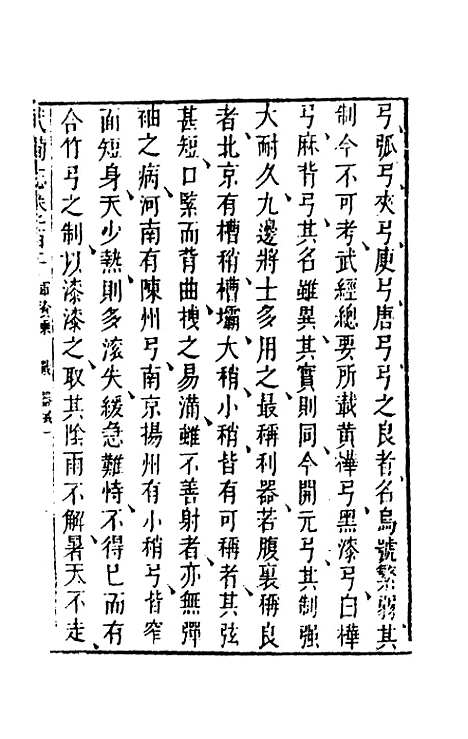 弓弧弓夾弓庾弓唐弓弓之良者名烏號繁弱其
制今不可考武經總要所載黃樺弓黑漆弓白樺
弓麻背弓其名雖異其實則同今開元弓其制强
大耐久九邊將士多用之最稱利器若腹裏稱良
者北京有槽稍槽壩大稍小稍皆有可稱者其弦
甚短口緊而背曲拽之易滿雖不善射者亦無彈
袖之病河南有陳州弓南京揚州有小稍弓皆窄
面短身天少熱則多滚失緩急難恃不得已而有
合竹弓之制以漆漆之取其陰雨不解暑天不走
武備志卷之百二